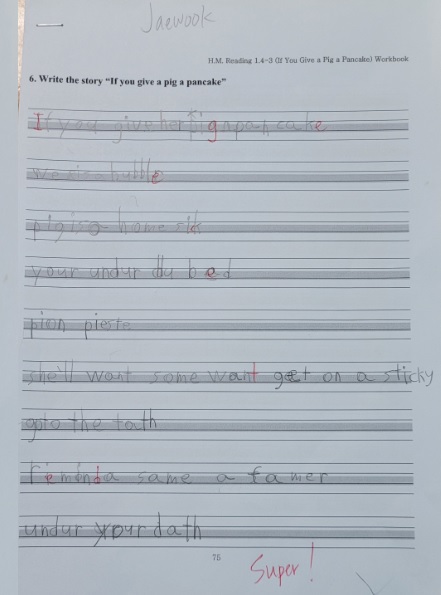 Jaewook
H.M. Reading 1.4-3 (If You Give a Pig a Pancake) Workbook
6. Write the story "If you give a pig a pancake"
If you give her pig a pancake
bubble
pig is a home sik
your undur du bed
pion pieste
she'll want some want get on a sticky
goto the tath
remonda same a famer
undur your dath
75
Super!